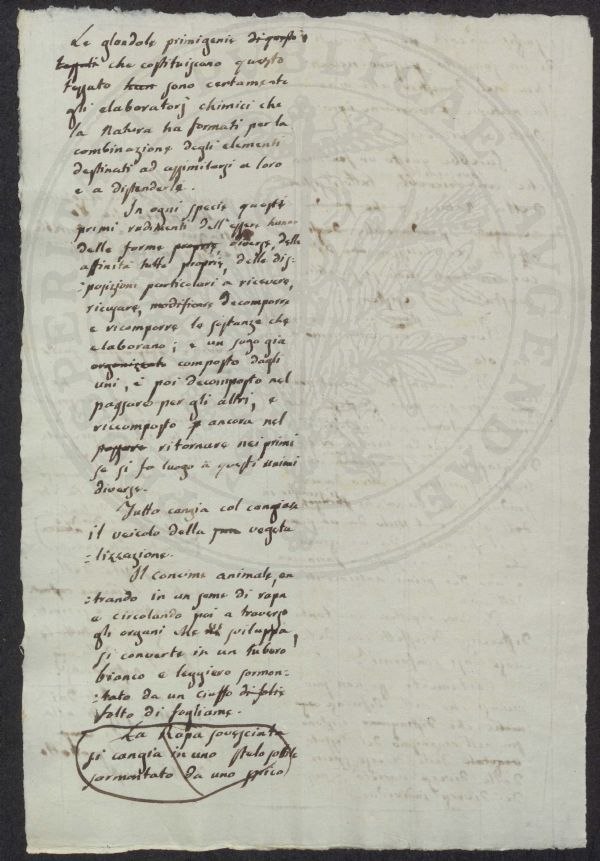 Le glandole primigenie di questo
tessuti che costituiscono questo
tessuto sono certamente
gli elaboratorj chimici che
la Natura ha formati per la
combinazione degli elementi
destinati ad assimilarsi a loro
e a distenderle.
In ogni specie questi
primi rudimenti dell'essere hanno
delle forme proprie, diverse, delle
affinità tutte proprie, delle dis=
=posizioni particolari a ricevere,
ricusare, modificare decomporre
e ricomporre le sostanze che
elaborano; e un sugo già
organizzato composto dagli
uni, è poi decomposto nel
passare per gli altri, e
riccomposto ancora nel
passare ritornare nei primi
se si fa luogo a questi
diverse.
Tutto cangia col cangiare
il veicolo della vegeta
=lizzazione.
Il concime animale, en
=trando in un seme di rapa
a circolando poi a traverso
gli organi che sviluppa,
si converte in un tubero
bianco e leggiero sormon=
=tato da un ciuffo di folie
folto di fogliame.
La Rapa sovescinta
si cangia in uno stelo sottile
sormontato da uno